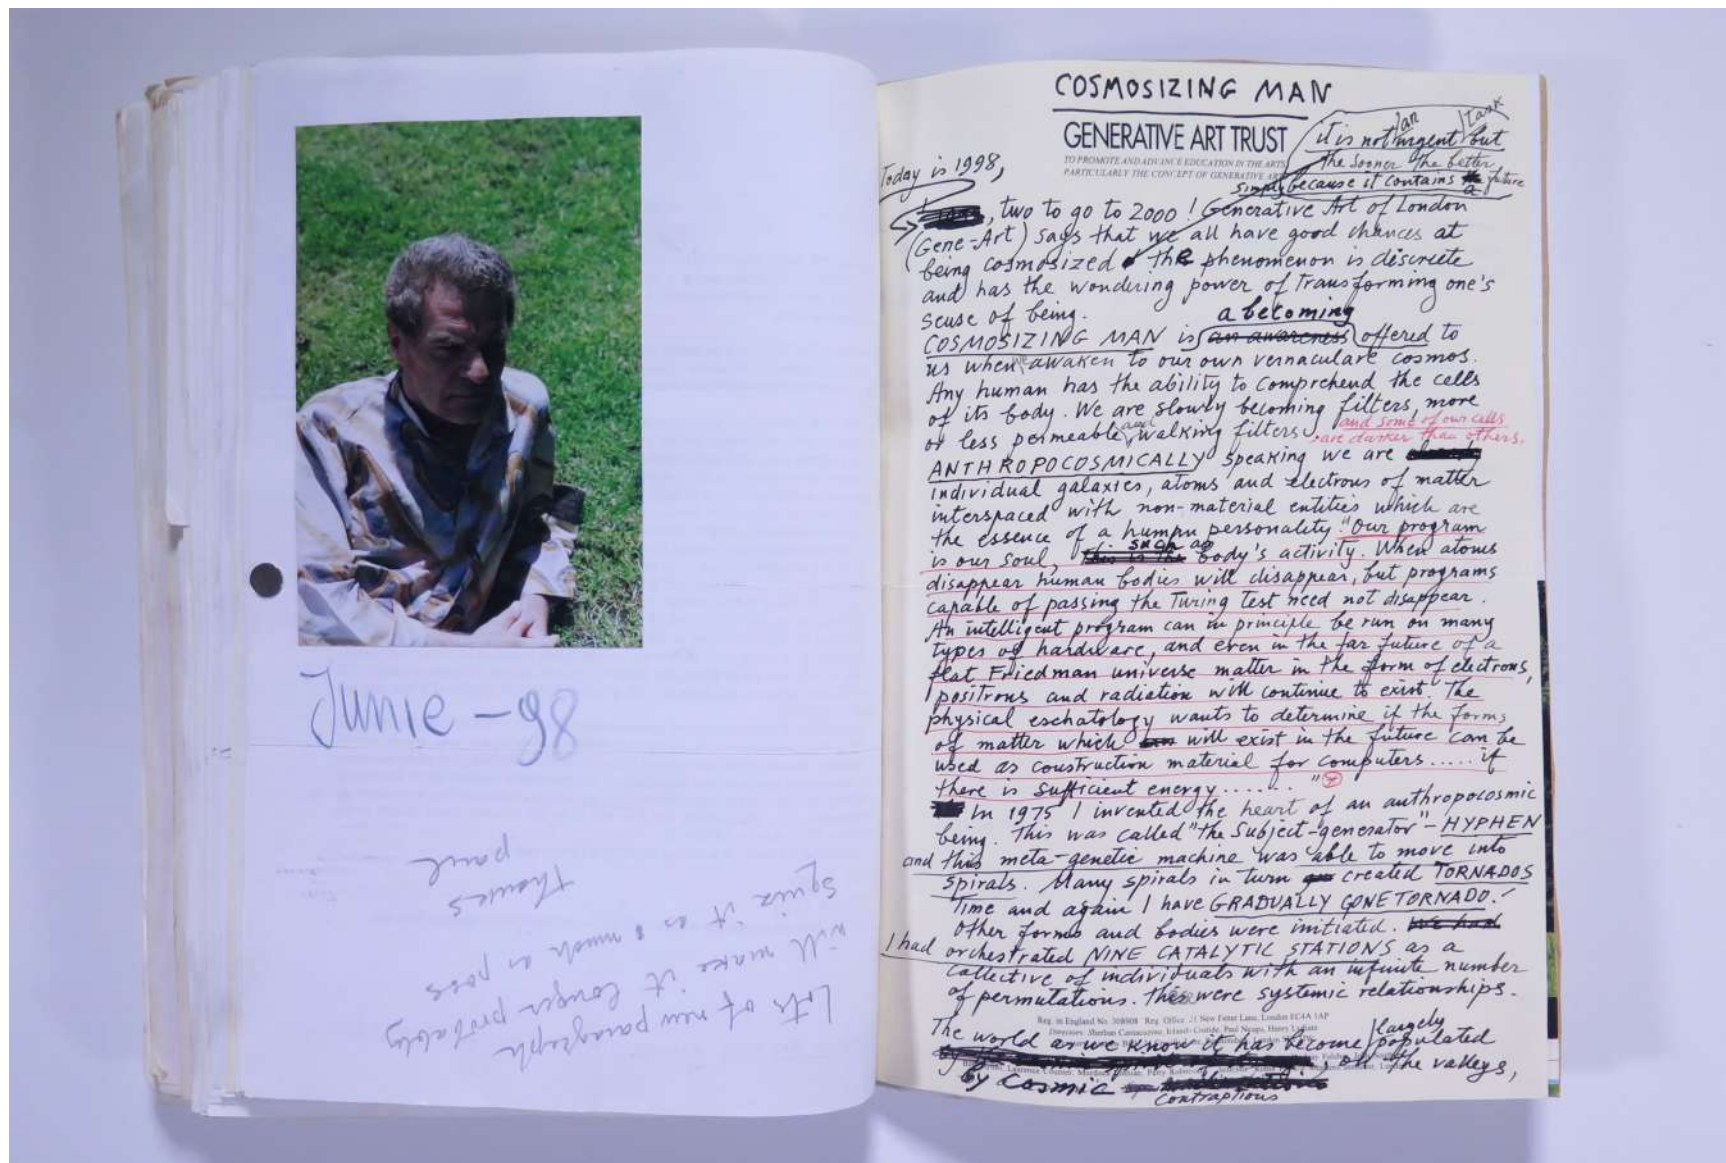 Junie - 98
Lots of new paragraph
will make it longer probably
Squiz it as much as poss
Thanks
paul
COSMOSIZING MAN
GENERATIVE ART TRUST
TO PROMOTE AND ADVANCE EDUCATION IN THE ARTS
PARTICULARLY THE CONCEPT OF GENERATIVE
it is not an urgent task but
the sooner the better
simply because it contains a future
Today is 1998,
, two to go to 2000 ! Generative Art of London
(Gene-Art) says that we all have good chances at
being cosmosized the phenomenon is discrete
and has the wondering power of transforming one's
sense of being.
a becoming
COSMOSIZING MAN is an awareness offered to
us when we awaken to our own vernaculare cosmos.
Any human has the ability to comprehend the cells
of its body. We are slowly becoming filters, more
or less permeable and walking filters and some of our cells
are darker than others.
ANTHROPOCOSMICALLY speaking we are already
individual galaxies, atoms and electrons of matter
interspaced with non-material entities which are
the essence of a human personality. "Our program
is our soul, such as body's activity. When atoms
disappear human bodies will disappear, but programs
capable of passing the Turing test need not disappear.
An intelligent program can in principle be run on many
types of hardware, and even in the far future of a
flat Friedman universe matter in the form of electrons,
positrons and radiation will continue to exist. The
physical eschatology wants to determine if the forms
of matter which will exist in the future can be
used as construction material for computers..... if
there is sufficient energy ...... "
In 1975 I invented the heart of an anthropocosmic
being. This was called "the Subject-generator" - HYPHEN
and this meta-genetic machine was able to move into
spirals. Many spirals in turn created TORNADOS
Time and again I have GRADUALLY GONE TORNADO!
Other forms and bodies were initiated. We had
I had orchestrated NINE CATALYTIC STATIONS as a
collective of individuals with an infinite number
of permutations. These were systemic relationships.
Reg. in England No. Reg. Office 21 New Fetter Lane, London EC4A 1AP
The world as we know it has become largely populated
, all the valleys,
by cosmic
contraptions